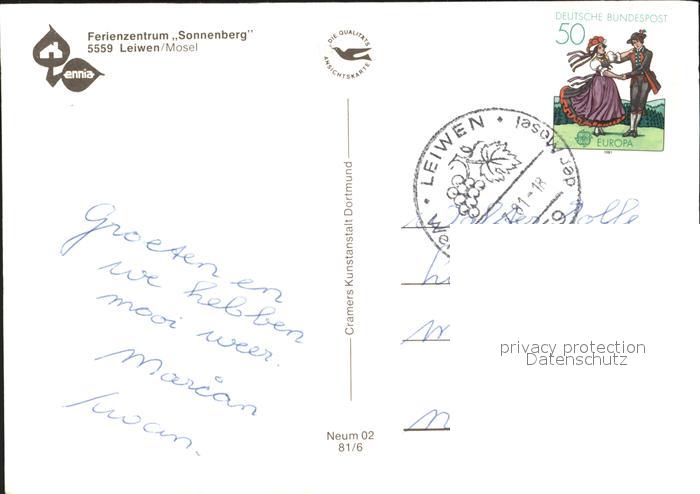 Ferienzentrum „Sonnenberg"
5559 Leiwen/Mosel
ennia
DIE QUALITÄTS
ANSICHTSKARTE
DEUTSCHE BUNDESPOST
50
EUROPA
1981
LEIWEN
der Mosel
81-18
Groeten en
we hebben
mooi weer.
Marian
Cramers Kunstanstalt Dortmund
Neum 02
81/6
privacy protection
Datenschutz